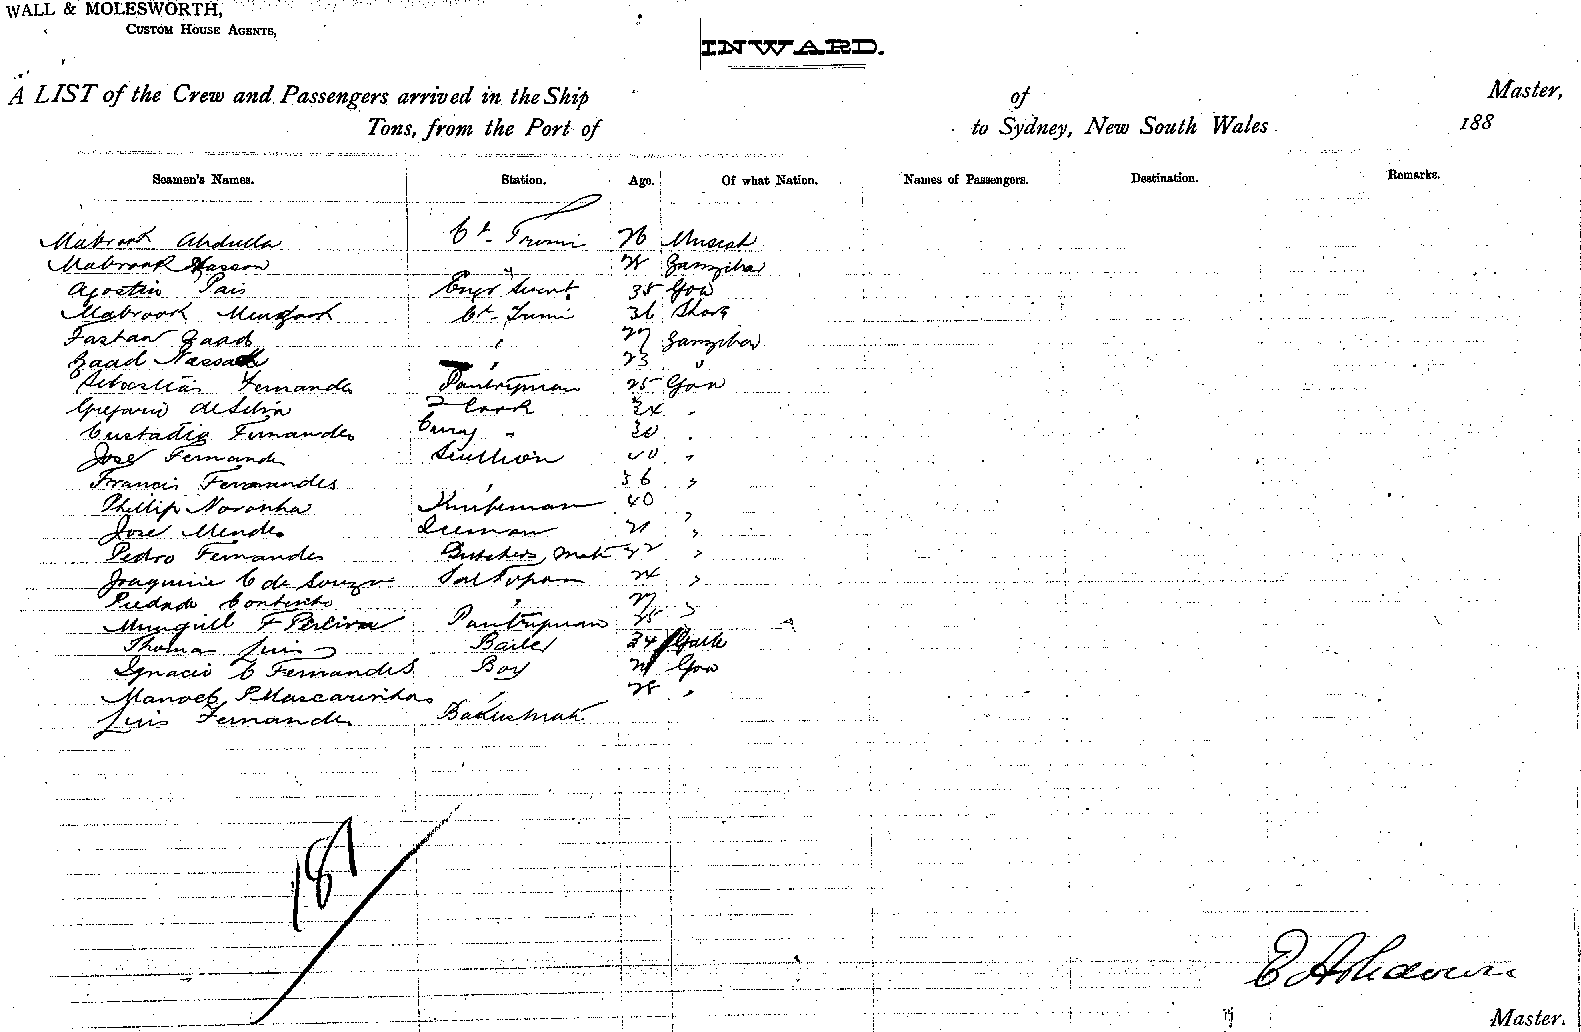 WALL & MOLESWORTH,
CUSTOM HOUSE AGENTS,
INWARD.
A LIST of the Crew and Passengers arrived in the Ship of Master,
Tons, from the Port of to Sydney, New South Wales 188
Seamen's Names. Station. Age. Of what Nation. Names of Passengers. Destination. Remarks.
Mabrook Abdulla 26 Muscat
Mabrook Hasson " 28 Zanzibar
Agostin Pais Engr Servt. 35 Goa
Mabrook 36
Zaad " 27 Zanzibar
Zaad " 23 "
Sebastias Fernandes Pantryman 25 Goa
Gregario deSilva 2 Cook 34 "
Custadio Fernandes Curry " 30 "
Jose Fernand Scullion 40 "
Francis Fernandes " 36 "
Phillip Noronha 40 "
Jose Mendes 21 "
Pedro Fernandes Butchers Mate 32 "
Joaquim C de Souza 24 "
Piedade " 27 "
F Pereira Pantryman 25
Thomas Luis 34
Ignacio C Fernandes Boy Goa
Manoel P Mascarinhas " 28 "
Luis Fernandes Bakers Mate
181
E Ashdown
Master.